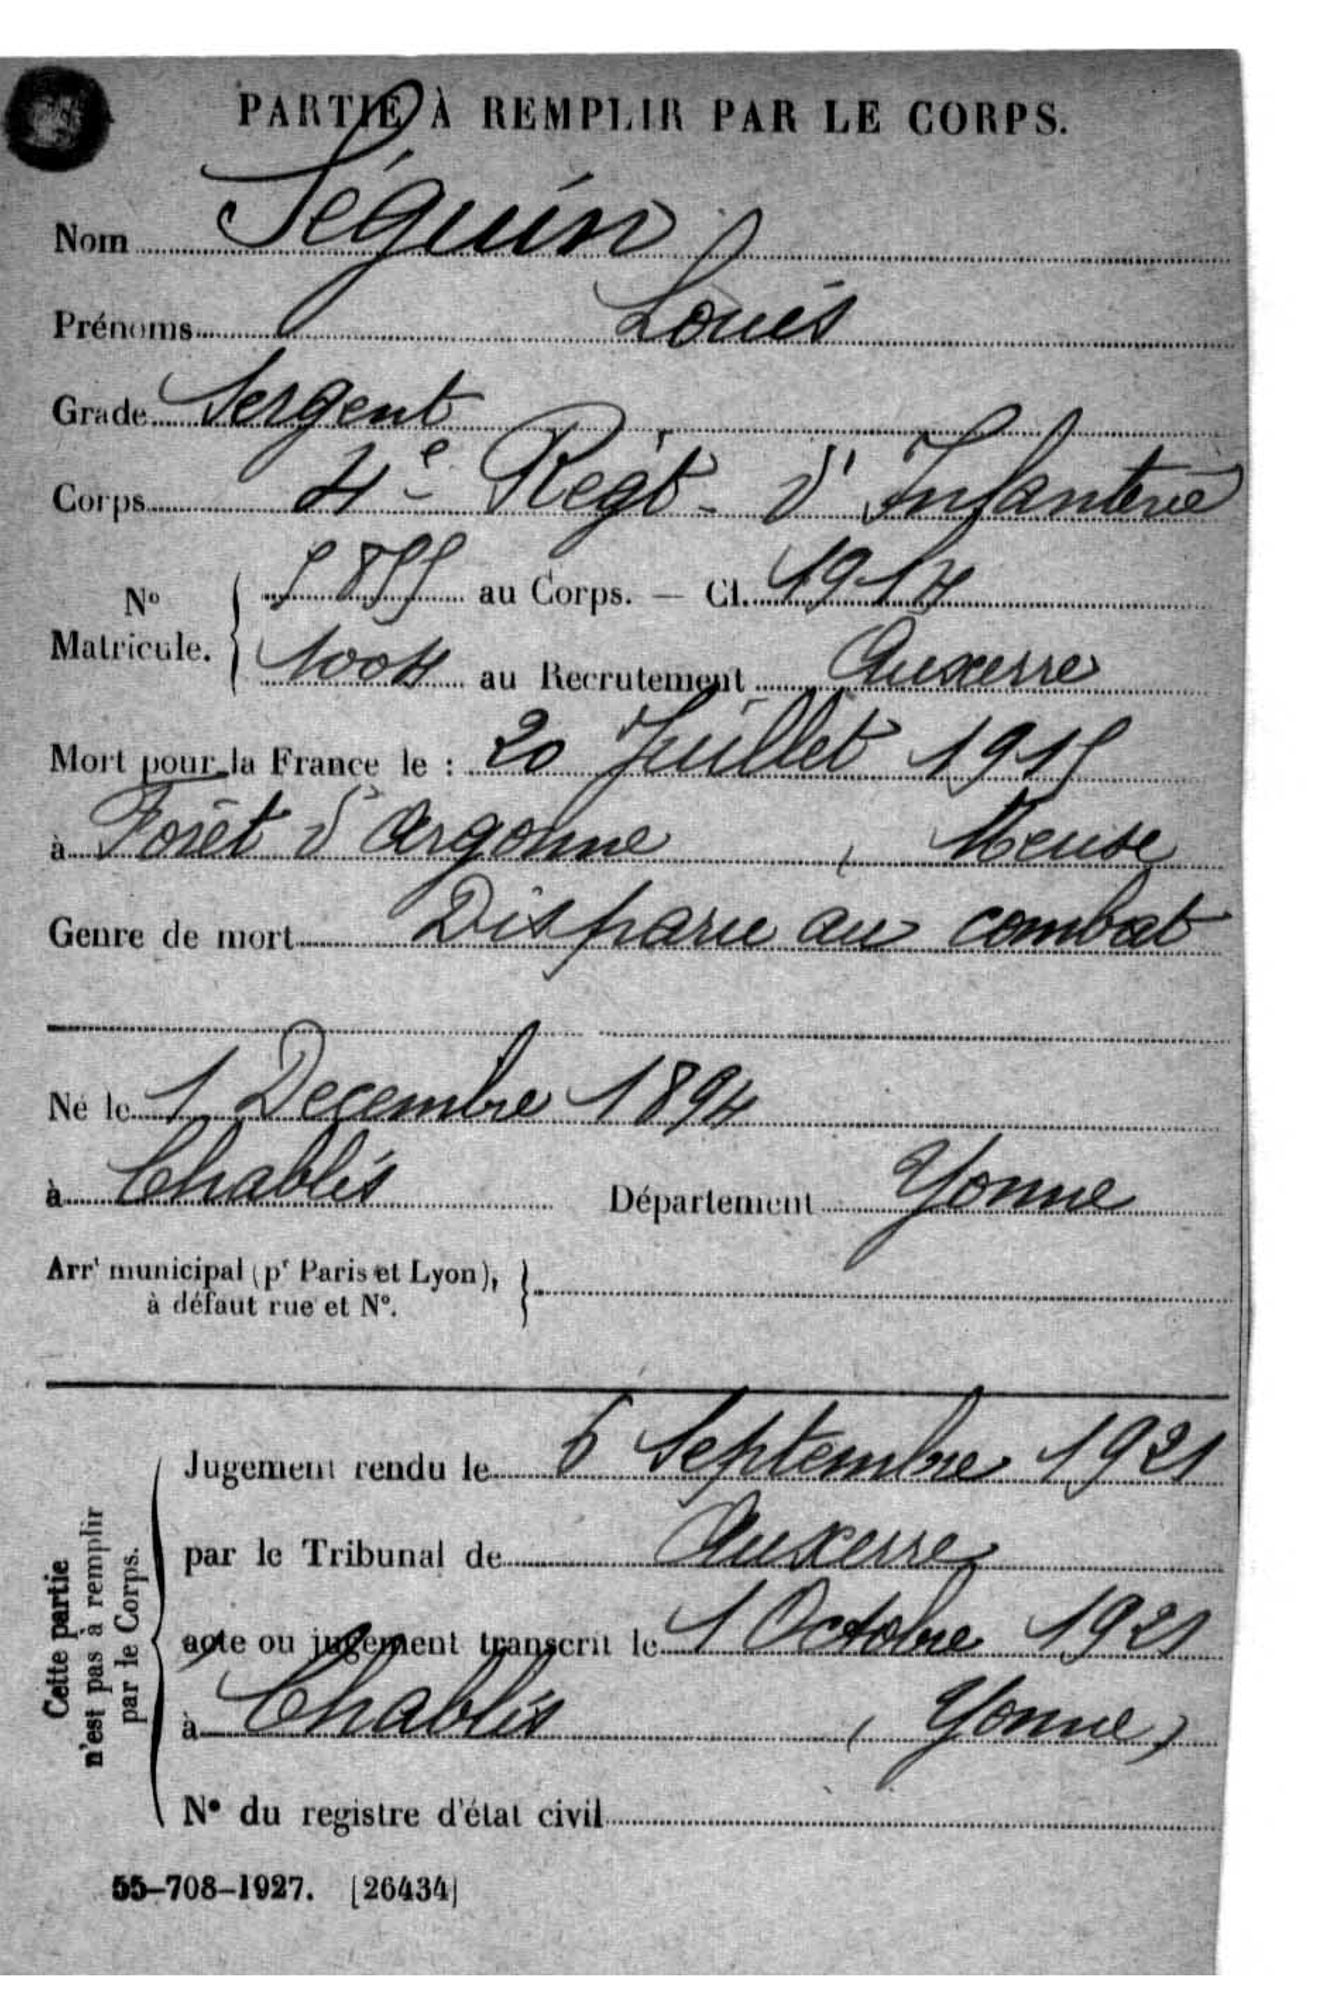 PARTIE À REMPLIR PAR LE CORPS.
Nom Séguin
Prénoms Louis
Grade Sergent
Corps 4e Régt d'Infanterie
No Matricule. { 5855 au Corps. — Cl. 1914
1004 au Recrutement Auxerre
Mort pour la France le : 20 Juillet 1915
à Forêt d'Argonne ( Meuse
Genre de mort Disparu au combat
Né le 1 Decembre 1894
à Chablis Département Yonne
Arrt municipal (pr Paris et Lyon), }
à défaut rue et N°.
Cette partie
n'est pas à remplir
par le Corps.
Jugement rendu le 6 Septembre 1921
par le Tribunal de Auxerre
acte ou jugement transcrit le 1 Octobre 1921
à Chablis ( Yonne )
N° du registre d'état civil
55-708-1927. [26434]